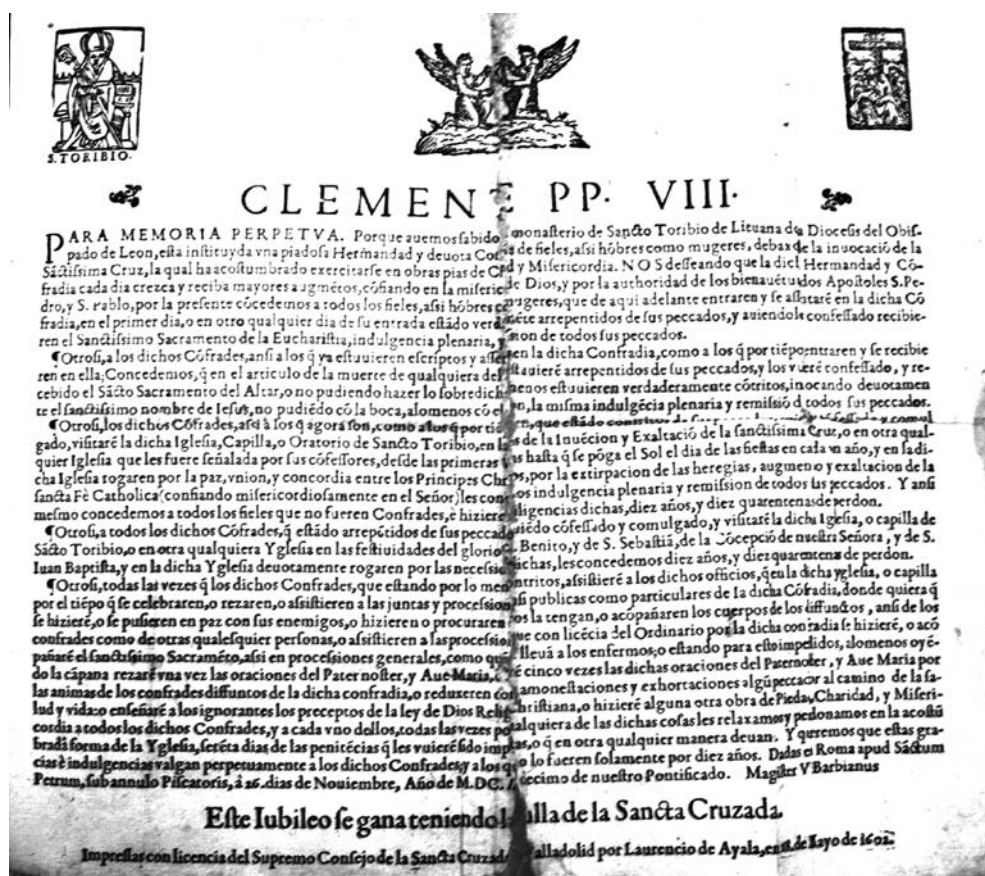 S. TORIBIO.
CLEMENE PP. VIII.
PARA MEMORIA PERPETVA. Porque auemos sabido monasterio de Sancto Toribio de Lieuana de Diocesis del Obis-
pado de Leon, esta instituyda vna piadosa Hermandad y deuota Cof s de fieles, assi hõbres como mugeres, debax de la inuocación de la
Sãctissima Cruz, la qual ha acostumbrado exercitarse en obras pias de C d y Misericordia. NOS desseando que la dic Hermandad y Cõ-
fradia cada dia crezca y reciba mayores augmẽtos, cõfiando en la miseric de Dios, y por la authoridad de los bienauẽturados Apostoles S. Pe-
dro, y S. Pablo, por la presente cõcedemos a todos los fieles, assi hõbres co mugeres, que de aqui adelante entraren y se assẽtarẽ en la dicha Cõ
fradia, en el primer dia, o en otro qualquier dia de su entrada estãdo verd mẽte arrepentidos de sus peccados, y auiendo confessado recibie-
ren el Sanctissimo Sacramento de la Eucharistia, indulgencia plenaria, y sion de todos sus peccados.
¶Otrosi, a los dichos Cõfrades, ansi a los q̃ ya estuuieren escriptos y asse en la dicha Confradia, como a los q̃ por tiẽpo entraren y se recibie
ren en ella; Concedemos, q̃ en el articulo de la muerte de qualquiera del stãuierẽ arrepentidos de sus peccados, y los vuierẽ confessado, y re-
cebido el Sãcto Sacramento del Altar, o no pudiendo hazer lo sobredich menos estuuieren verdaderamente cõtritos, inocando deuotamen
te el sanctissimo nombre de Iesus, no pudiẽdo cõ la boca, alomenos cõ el n, la misma indulgẽcia plenaria y remissiõ d todos sus peccados.
¶Otrosi, los dichos Cõfrades, assi a los q̃ agora son, como a los q̃ por tiẽ n, que estãdo
gado, visitarẽ la dicha Iglesia, Capilla, o Oratorio de Sancto Toribio, en l s de la Inuẽcion y Exaltació de la sanctissima Cruz, o en otra qual-
quier Iglesia que les fuere señalada por sus cõfessores, desde las primeras s hasta q̃ se põga el Sol el dia de las fiestas en cada vn año, y en la di-
cha Iglesia rogaren por la paz, vnion, y concordia entre los Principes Ch os, por la extirpacion de las heregias, augmeno y exaltacion de la
sancta Fè Catholica (confiando misericordiosamente en el Señor) les con os indulgencia plenaria y remission de todos sus peccados. Y ansi
mesmo concedemos a todos los fieles que no fueren Confrades, è hiziere iligencias dichas, diez años, y diez quarentenas de perdon.
¶Otrosi, a todos los dichos Cõfrades, q̃ estãdo arrepẽtidos de sus peccado uiẽdo cõfessado y comulgado, y visitarẽ la dicha Iglesia, o capilla de
Sãcto Toribio, o en otra qualquiera Yglesia en las festiuidades del glorio Benito, y de S. Sebastiã, de la Cõcepció de nuestra Señora, y de S.
Iuan Baptista, y en la dicha Yglesia deuotamente rogaren por las necessi ichas, les concedemos diez años, y diez quarentenas de perdon.
¶Otrosi, todas las vezes q̃ los dichos Confrades, que estando por lo men ntritos, assistierẽ a los dichos officios, q̃ en la dicha yglesia, o capilla
por el tiẽpo q̃ se celebraren, o rezaren, o assistieren a las juntas y procession si publicas como particulares de la dicha Cõfradia, donde quiera q̃
se hizierẽ, o se pusieren en paz con sus enemigos, o hizieren o procuraren os la tengan, o acõpañaren los cuerpos de los diffunctos, ansi de los
confrades como de otras qualesquier personas, o assistieren a las processio que con licẽcia del Ordinario por la dicha confradia se hizierẽ, o acõ
pañarẽ el sanctissimo Sacramẽto, assi en processiones generales, como qu lleuã a los enfermos; o estando para esto impelidos, alomenos oyẽ-
do la cãpana rezarẽ vna vez las oraciones del Pater noster, y Aue Maria, rẽ cinco vezes las dichas oraciones del Paternoster, y Aue Maria por
las animas de los confrades diffuntos de la dicha confradia, o reduxeren con amonestaciones y exhortaciones algũ peccador al camino de la sa-
lud y vida: o enseñarẽ a los ignorantes los preceptos de la ley de Dios Reli hristiana, o hizierẽ alguna otra obra de Piedad, Charidad, y Miseri-
cordia a todos los dichos Confrades, y a cada vno dellos, todas las vezes po alquiera de las dichas cosas les relaxamos y perdonamos en la acostũ
brada forma de la Yglesia, setẽta dias de las penitẽcias q̃ les vuierẽ sido imp as, o q̃ en otra qualquier manera deuan. Y queremos que estas gra-
cias è indulgencias valgan perpetuamente a los dichos Confrades, y a los q o lo fueren solamente por diez años. Dadas en Roma apud Sãctum
Petrum, sub annulo Piscatoris, à 26. dias de Nouiembre, Año de M.DC. dècimo de nuestro Pontificado. Magister V Barbianus
Este Iubileo se gana teniendo la ulla de la Sancta Cruzada.
Impressas con licencia del Supremo Consejo de la Sancta Cruzad alladolid por Laurencio de Ayala, en de Mayo de 1602.